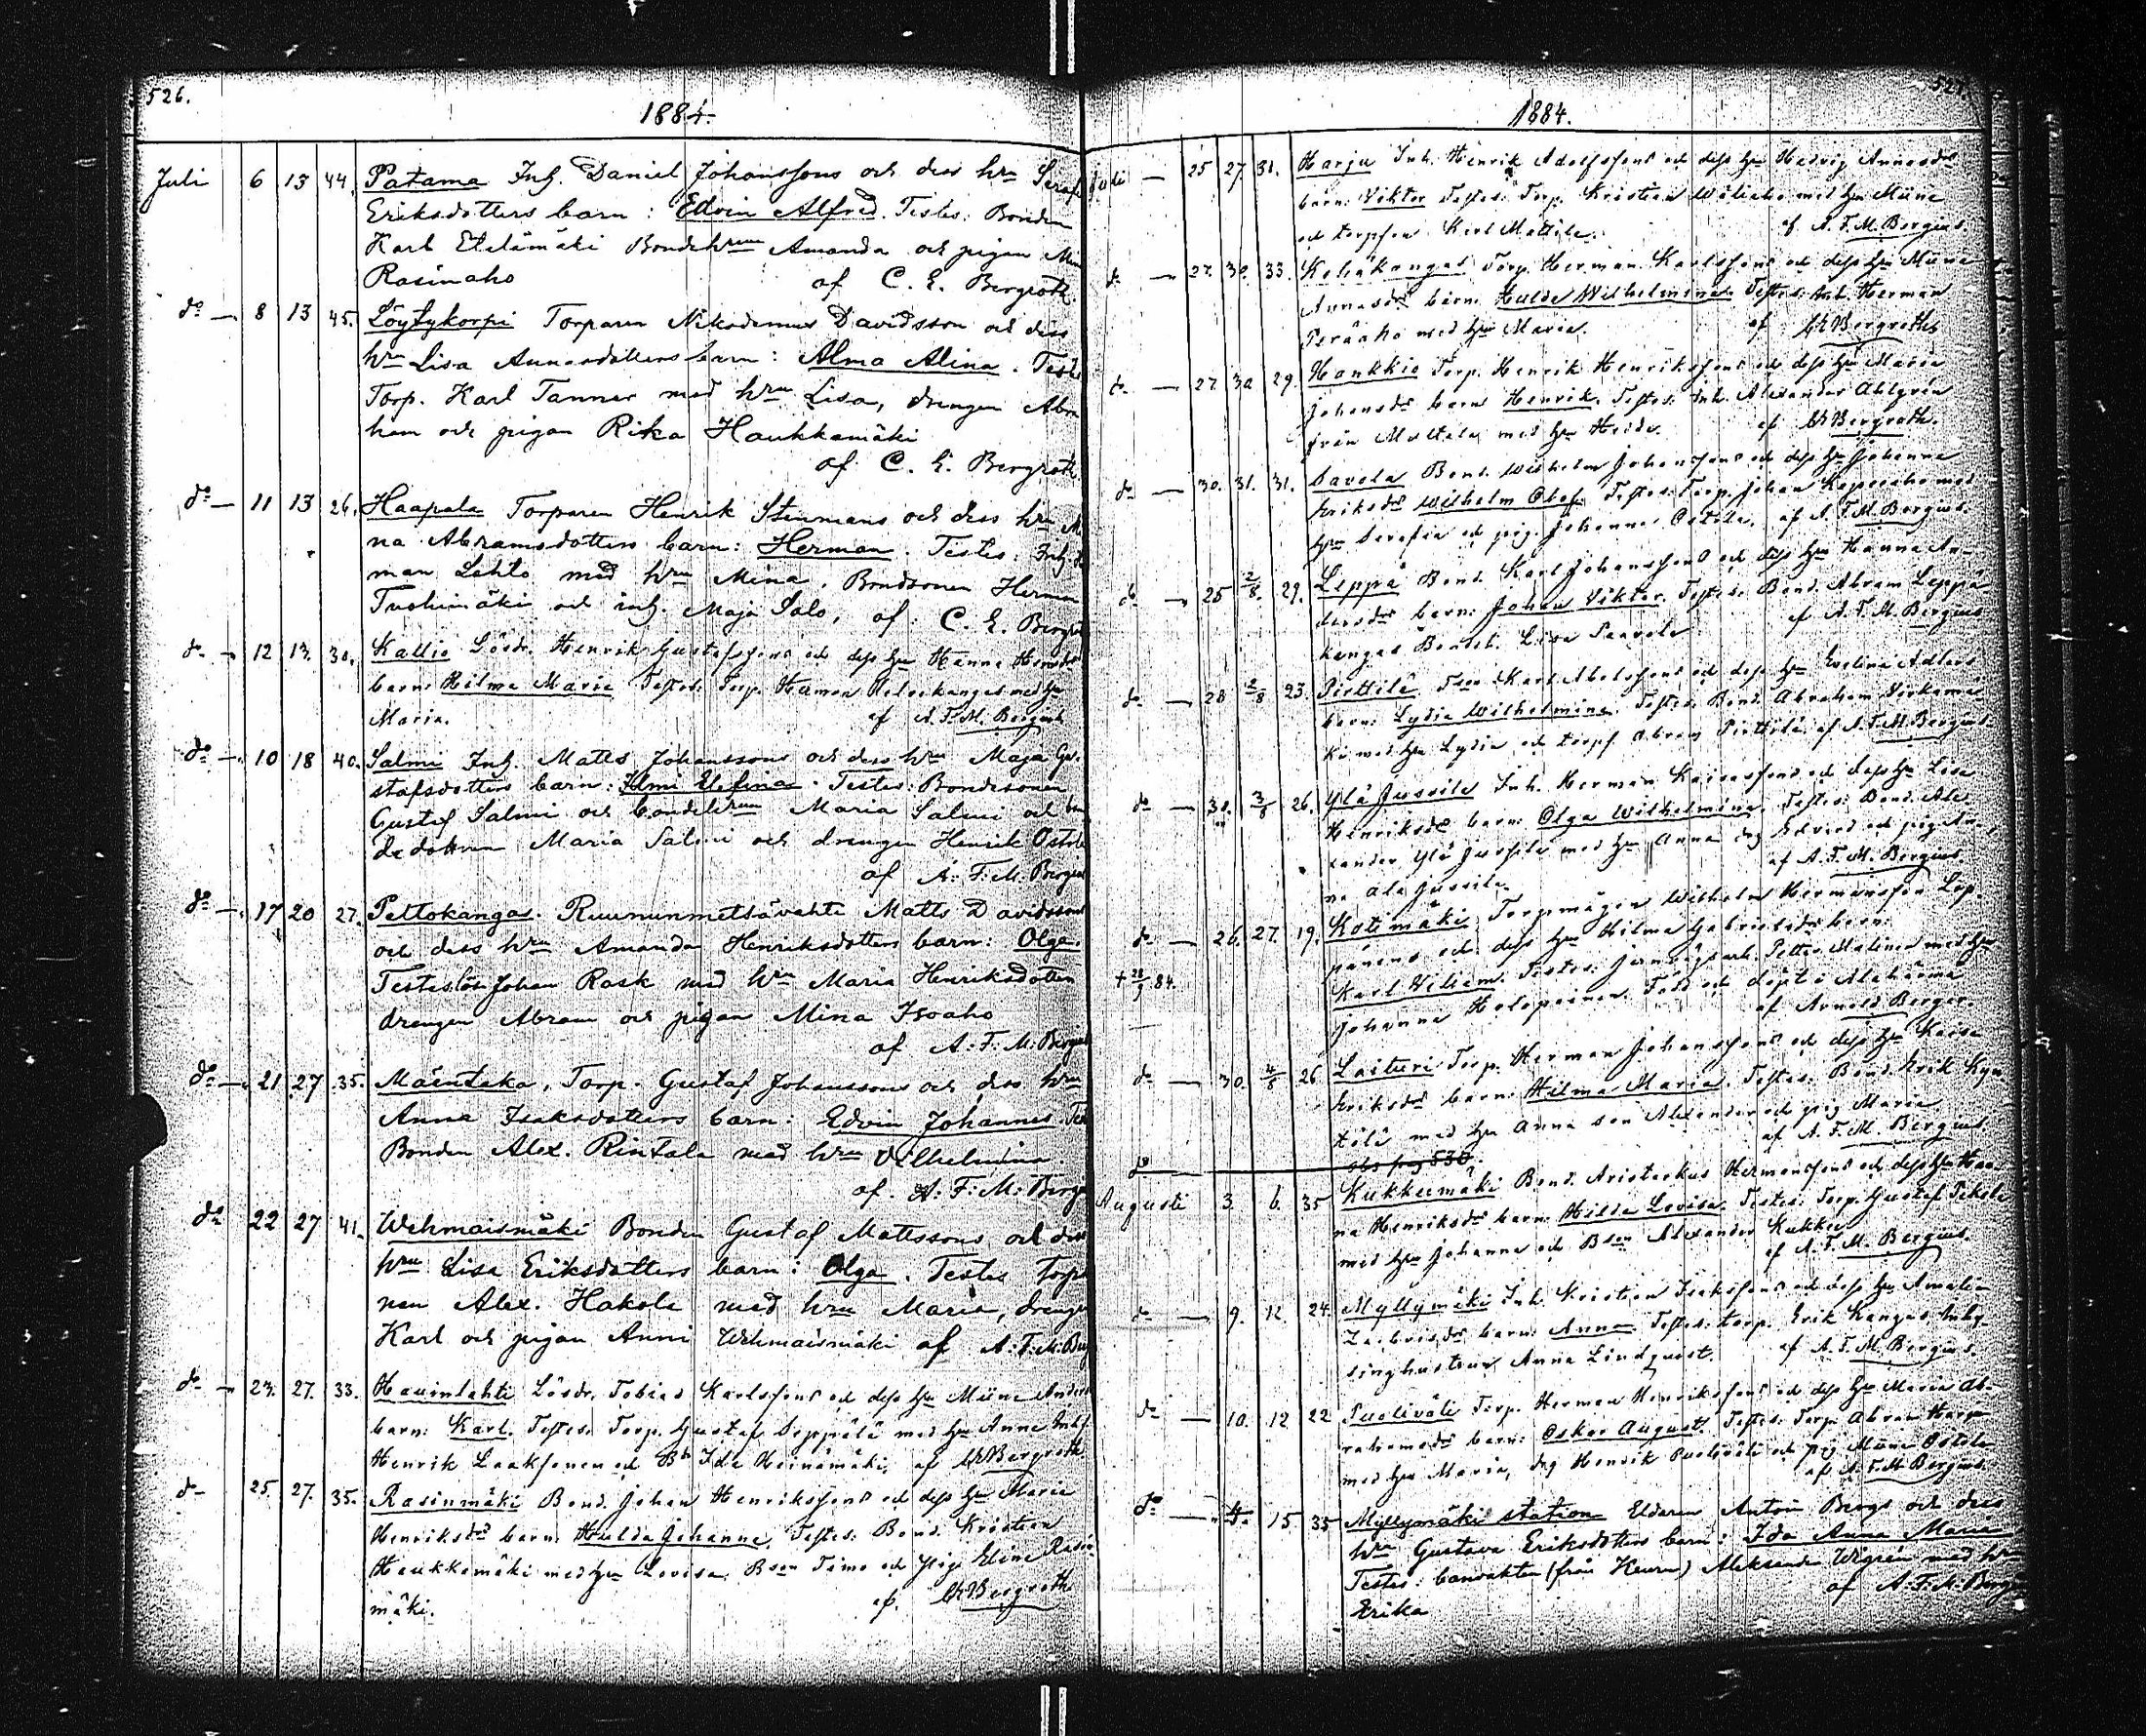 526.
1884.
Juli 6 13 44. Patama Inh. Daniel Johanssons och dess hru Seraf
Eriksdotters barn: Edvin Alfred. Testes: Bonden
Karl Etelämäki Bondehrun Amanda och pigan Mi
Rasinaho af C. E. Bergroth
do — 8 13 45. Löytykorpi Torparen Nikodemus Davidsson och dess
hru Lisa Annasdotters barn: Alma Alina. Testes
Torp. Karl Tanner med hru Lisa, drengen Abra
ham och pigan Rika Haukkamäki
af C. E. Bergroth
do — 11 13 26. Haapala Torparen Henrik Stenmans och dess hru Mi
na Abramsdotters barn: Herman. Testes: Inh.
man Lehto med hru Mina, Bondsonen Herman
Tuohimäki och inh. Maja Salo, af C. E. Bergro
do — 12 13. 30. Kallio Lösdr. Henrik Gustafssons och dess hru Hanna Henrdr
barn: Hilma Maria Testes: Torp. Haman med hru
Maria. af A. F. M. Bergius
do — 10 18 40. Salmi Inh. Matts Johanssons och dess hru Maja Gu-
stafsdotters barn: Ilmi Elefina. Testes: Bondesonen
Gustaf Salmi och bondehrun Maria Salmi och bon
dedottren Maria Salmi och drengen Henrik Ostola
af A. F. M. Bergius
do — 17 20 27. Peltokangas. Ruununmetsävahti Matts Davidssons
och dess hru Amanda Henriksdotters barn: Olga.
Testes: Lös. Johan Rask med hru Maria Henriksdotter
drengen Abram och pigan Mina Isoaho
af A. F. M. Bergius
do — 21 27 35. Mäentaka, Torp. Gustaf Johanssons och dess hru
Anna Isaksdotters barn: Edvin Johannes. Tes
Bonden Alex. Rintala med hru Vilhelmina.
af A. F. M. Bergi
do 22 27 41. Wehmaismäki Bonden Gustaf Mattssons och dess
hru Lisa Eriksdotters barn: Olga. Testes torpa
ren Alex. Hakola med hru Maria, drengen
Karl och pigan Anni Wehmaismäki af A. F. M. Berg
do — 23. 27. 33. Hauinlahti Lösdr. Tobias Karlssons och dess hru Miina Anders
barn: Karl. Testes: Torp. Gustaf Seppälä med hru Anna Inhs
Henrik Laaksonen och Bdr Ida Heinämäki, af CEBergroth
do 25. 27. 35. Rasinmäki Bond. Johan Henrikssons och dess hru Maria
Henriksdr barn: Hulda Johanna. Testes: Bond. Kristian
Haukkamäki med hru Lovisa Bson Timo och pig. Elina Rasin
mäki. af. CEBergroth
527.
1884.
Juli — 25 27. 31. Harju Inh. Henrik Adolfssons och dess hru Hedvig Annasdr
barn: Viktor Testes: Torp. Kristian med hru Miina
och torpson Karl Mattila. af A. F. M. Bergius.
do — 27. 30. 33. Kehäkangas Torp. Herman Karlssons och dess hru Miina
Annasdr barn: Hulda Wilhelmina Testes: Inh. Herman
Peräaho med hru Maria. af CEBergroth
do — 27. 30. 29. Hankkio Torp. Henrik Henrikssons och dess hru Maria
Johansdr barn Henrik. Testes: Inh. Alexander Ahlgren
från Multala med hru Heida. af CEBergroth.
do — 30. 31. 31. Savola Bond. Wilhelm Johanssons och dess hru Johanna
Eriksdr Wilhelm Olof. Testes: Torp. Johan med
hru Serafia och pig. Johanna Ostola. af A. F. M. Bergius.
do — 25 2/8. 29. Leppä Bond. Karl Johanssons och dess hru Hanna An-
dersdr barn: Johan Viktor. Testes: Bond. Abram Leppä
kangas Bondeh. Lisa Saavola af A. F. M. Bergius
do — 28 2/8 23. Pirttilä Tson Karl Abelssons och dess hru Evelina Adlers
barn: Lydia Wilhelmina. Testes: Bond. Abraham Virkamä
ki med hru Lydia och torps. Abram Pirttilä af A. F. M. Bergius.
do — 30. 3/8 26. Ylä Jussila Inh. Herman Kaisassons och dess hru Lisa
Henriksdr barn: Olga Wilhelmina Testes: Bond. Ale-
xander Ylä Jussila med hru Anna drg Edvard och pigan An
na Ala Jussila. af A. F. M. Bergius.
do — 26. 27. 19. Kotimäki Torpmågen Wilhelm Hermansson Lep-
pänens och dess hru Hilma Gabrielsdr barn:
+ 28/9 84. Karl Viliam. Testes: jernvägsarb. Petter Malinen med hru
Johanna Holopainen. Född och döpt i Alahärmä
af Arnold Berger.
do — 30. 4/8 26 Laituri Torp. Herman Johanssons och dess hru Kaisa
Eriksdr barn: Hilma Maria. Testes: Bond. Erik Kyn
tölä med hru Anna son Alexander och pig Maria
af A. F. M. Bergius.
do — obs pag 530.
Augusti 3. 6. 35 Kukkumäki Bond. Aristarkus Hermanssons och dess hru Han
na Henriksdr barn: Hilda Lovisa. Testes: Torp. Gustaf Pekola
med hru Johanna och Bson Alexander Kukku
af A. F. M. Bergius.
do — 9. 12 24. Myllymäki Inh. Kristian Isakssons och dess hru Amalia
barn: Anna. Testes: torp. Erik Kangas Inhy
singhustrun Anna Lindqvist. af A. F. M. Bergius.
do — 10. 12 22 Puoliväli Torp. Herman Henrikssons och dess hru Maria Ab-
rahamsdr barn: Oskar August. Testes: Torp. Abram
med hru Maria, drg Henrik Puoliväli och pig Miina Ostola
af A. F. M. Bergius.
do — 4. 15 35 Myllymäki station Eldaren Anton Bergs och dess
hru Gustava Eriksdotters barn: Ida Anna Maria
Testes: banvakten (från Keuru) Aleksander Wigrén med hru
Erika af A. F. M. Bergius